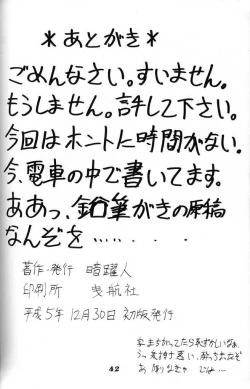 *あとがき*
ごめんなさい。すいません。
もうしません。許して下さい。
今回はホントに時間がない。
今、電車の中で書いてます。
ああっ、鉛筆がきの原稿
なんぞを・・・・・
著作・発行 暗躍人
印刷所 曳航社
平成5年12月30日 初版発行
42